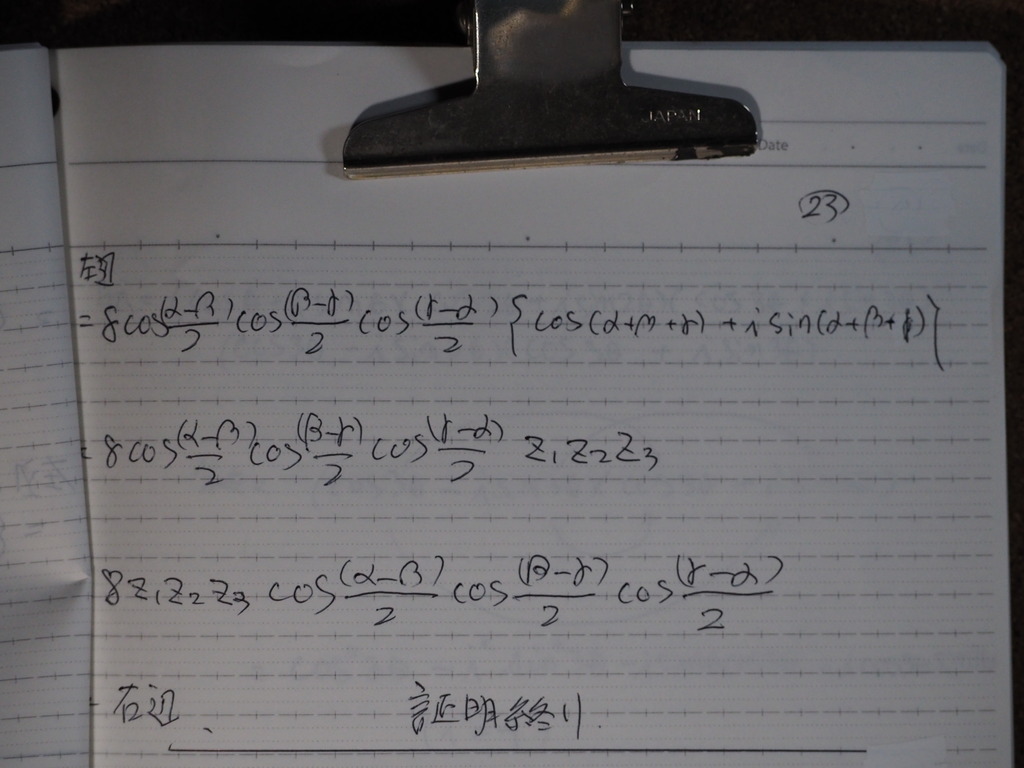 JAPAN
Date
㉓
左辺
= 8cos(α-β)/2 cos(β-γ)/2 cos(γ-α)/2 {cos(α+β+γ) + i sin(α+β+γ)}
= 8cos(α-β)/2 cos(β-γ)/2 cos(γ-α)/2 z₁z₂z₃
8z₁z₂z₃ cos(α-β)/2 cos(β-γ)/2 cos(γ-α)/2
= 右辺. 証明終り.